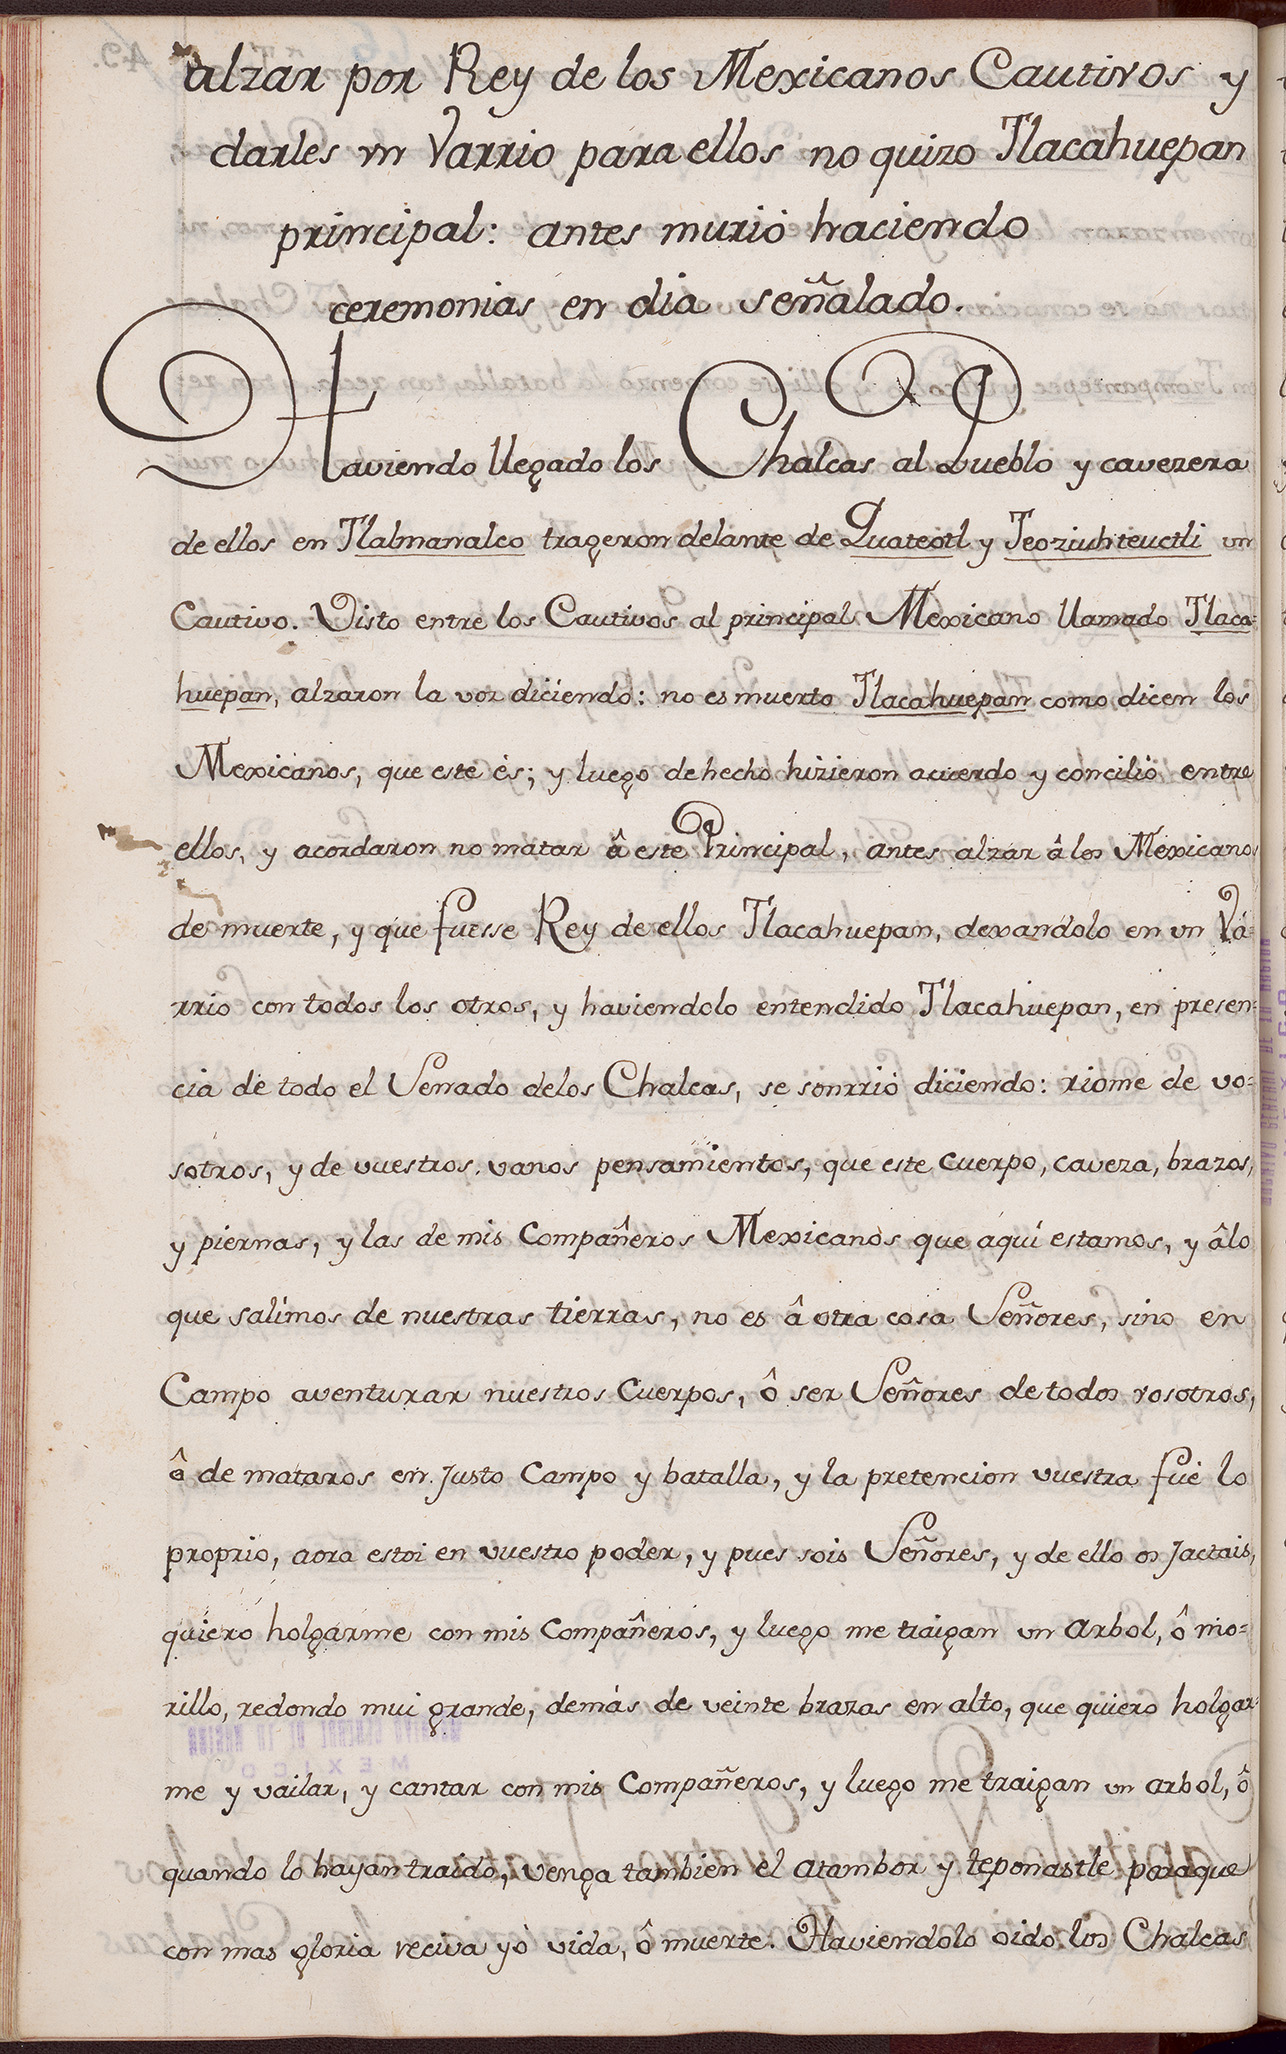 alzar por Rey de los Mexicanos Cautivos y
darles vn Varrio para ellos no quizo Tlacahuepan
principal: antes murió haciendo
ceremonias en dia señalado.
Haviendo llegado los Chalcas al Pueblo y cavezera
de ellos en Tlalmanalco trageron delante de Quateotl y Teoziuhteuctli vn
Cautivo. Visto entre los Cautivos al principal Mexicano llamado Tlaca=
huepan, alzaron la voz diciendo: no es muerto Tlacahuepan como dicen los
Mexicanos, que este és; y luego de hecho hizieron acuerdo y concilió entre
ellos, y acordaron no matar â este Principal, antes alzar â los Mexicanos
de muerte, y que fuesse Rey de ellos Tlacahuepan, dexandolo en vn Vá=
rrio con todos los otros, y haviendolo entendido Tlacahuepan, en presen=
cia de todo el Senado delos Chalcas, se sonrrió diciendo: riome de vo=
sotros, y de vuestros vanos pensamientos, que este cuerpo, caveza, brazos,
y piernas, y las de mis Compañeros Mexicanos que aquí estamos, y âlo
que salimos de nuestras tierras, no es â otra cosa Señores, sino en
Campo aventurar nuestros Cuerpos, ô ser Señores de todos vosotros,
ô de mataros en Justo Campo y batalla, y la pretencion vuestra fué lo
proprio, aora estoi en vuestro poder, y pues sois Señores, y de ello os Jactais,
quiero holgarme con mis Compañeros, y luego me traigan vn arbol, ô mo=
rillo, redondo mui grande, demás de veinte brazas en alto, que quiero holgar=
me y vailar, y cantar con mis Compañeros, y luego me traigan vn arbol, ô
quando lo hayan traido, venga tambien el atambor y teponastle paraque
con mas gloria reciva yò vida, ô muerte. Haviendolo oido los Chalcas